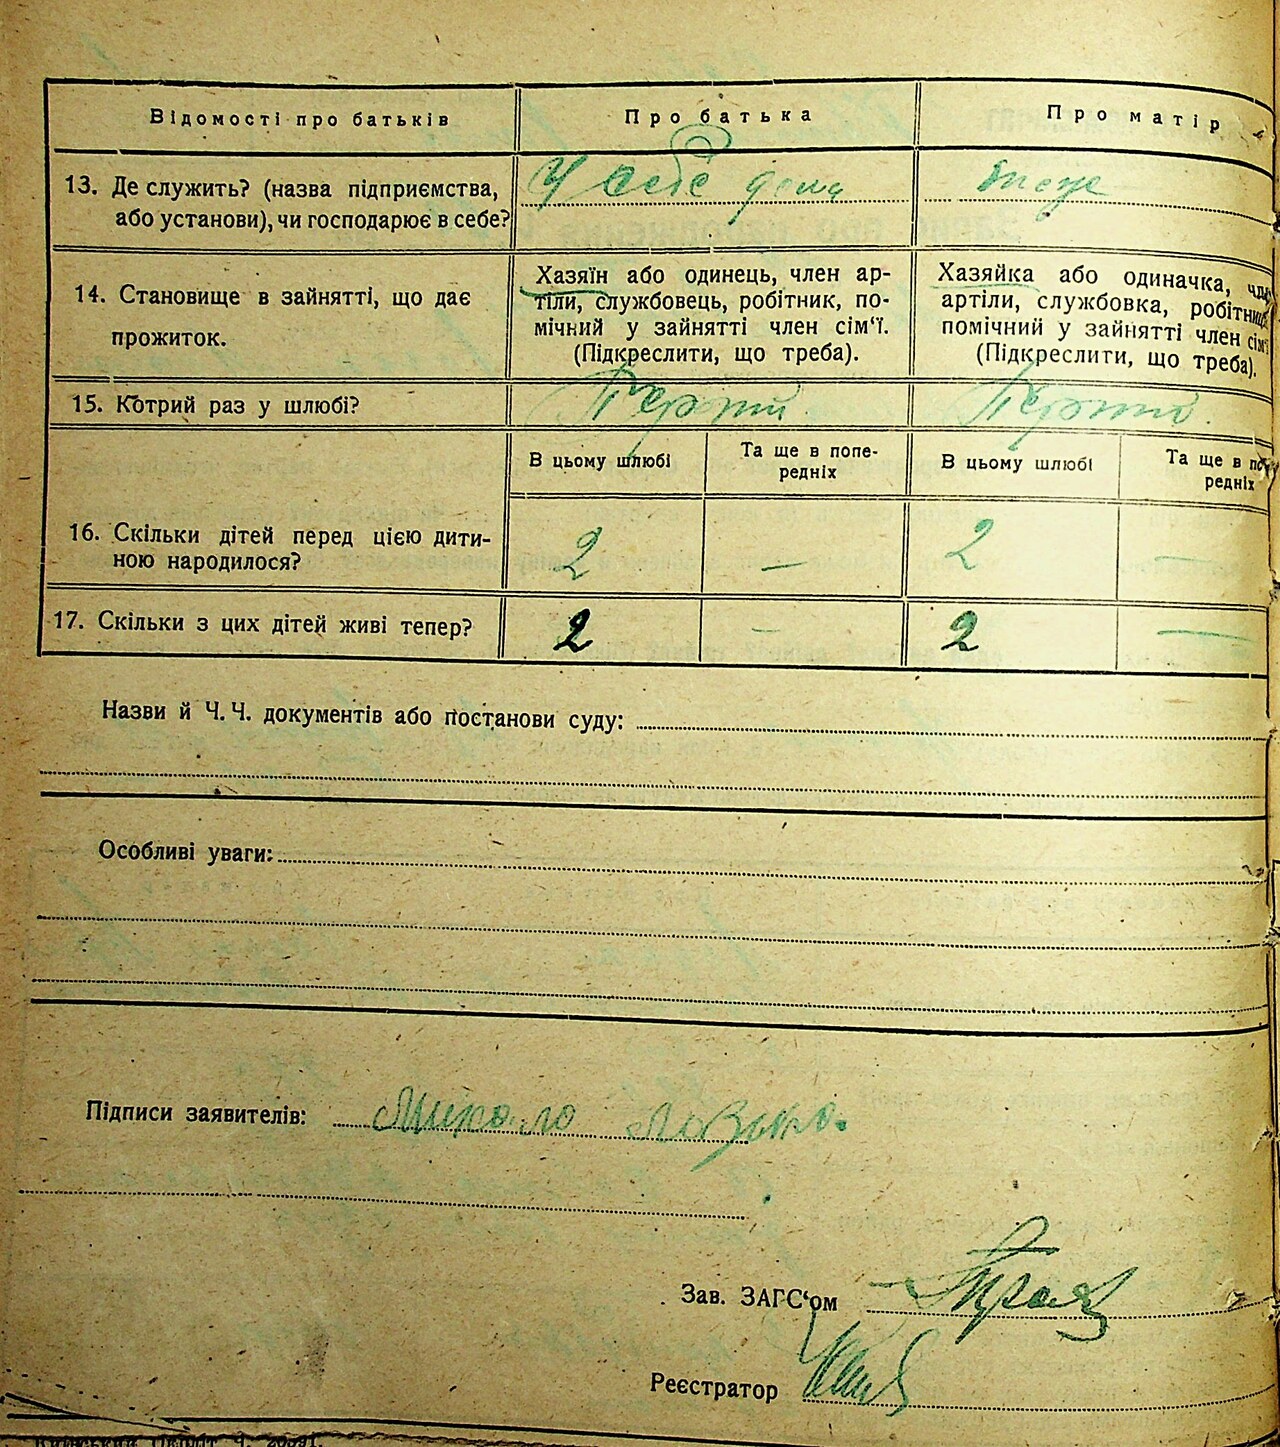 Відомості про батьків
Про батька
Про матір
13. Де служить? (назва підприємства,
або установи), чи господарює в себе?
У себе дома
тоже
14. Становище в зайнятті, що дає
прожиток.
Хазяїн або одинець, член ар-
тіли, службовець, робітник, по-
мічний у зайнятті член сім'ї.
(Підкреслити, що треба).
Хазяйка або одиначка, член
артіли, службовка, робітниця
помічний у зайнятті член сім'ї
(Підкреслити, що треба).
15. Котрий раз у шлюбі?
В цьому шлюбі
Та ще в попе-
редніх
В цьому шлюбі
Та ще в по
редніх
16. Скільки дітей перед цією дити-
ною народилося?
2
—
2
—
17. Скільки з цих дітей живі тепер?
2
—
2
—
Назви й Ч. Ч. документів або постанови суду:
Особливі уваги:
Підписи заявителів: Михайло
Зав. ЗАГС'ом
Реєстратор